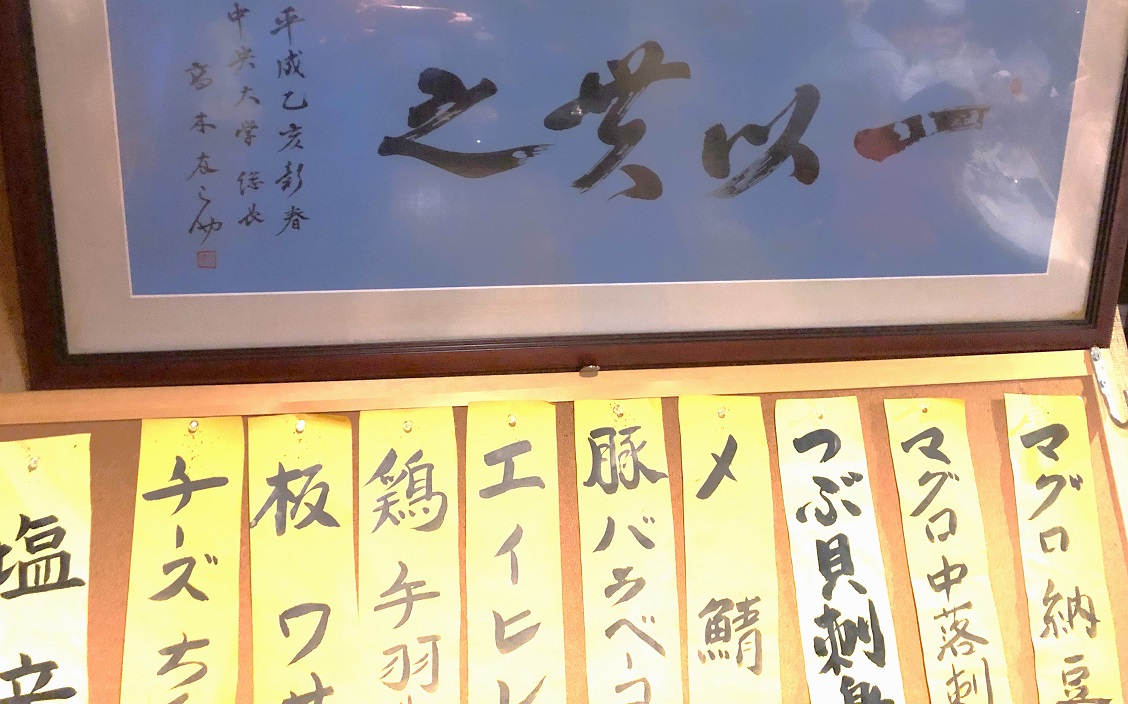 一以貫之
平成乙亥彭春
中央大学総長
高木友之助
マグロ納豆
マグロ中落刺
つぶ貝刺身
〆鯖
豚バラベーコ
エイヒレ
鶏手羽
板ワサ
チーズちく
塩辛